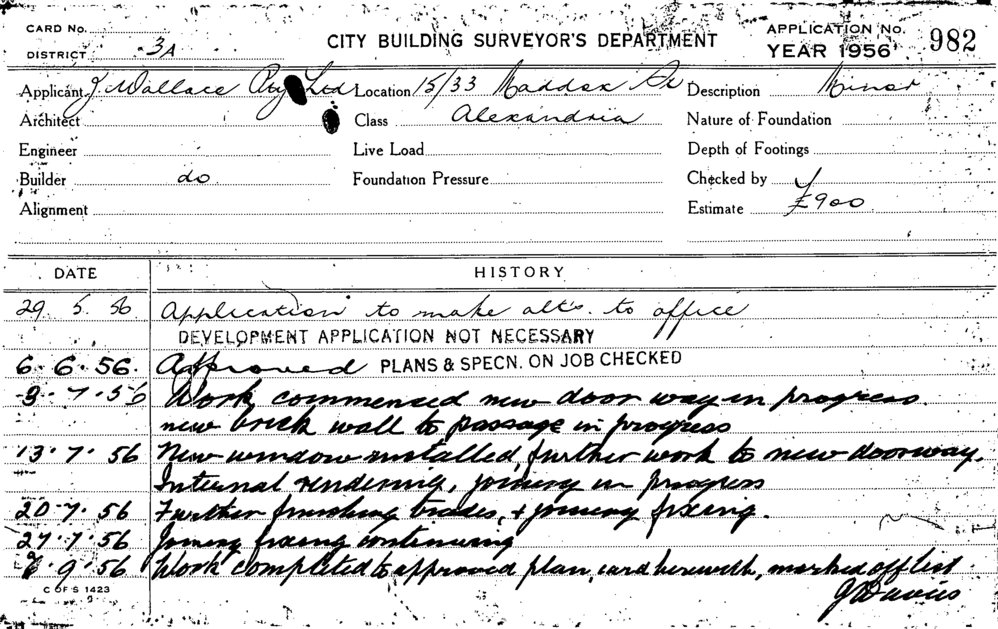 CARD No.
DISTRICT 3A
CITY BUILDING SURVEYOR'S DEPARTMENT
APPLICATION No. 982
YEAR 1956
Applicant J. Wallace Pty Ltd Location 15/33 Maddox St Description Minor
Architect Class Alexandria Nature of Foundation
Engineer Live Load Depth of Footings
Builder do Foundation Pressure Checked by
Alignment Estimate £900
DATE HISTORY
29. 5. 56 Application to make alts. to office
DEVELOPMENT APPLICATION NOT NECESSARY
6. 6. 56. Approved PLANS & SPECN. ON JOB CHECKED
9. 7. 56 Work commenced new door way in progress.
new brick wall to passage in progress
13. 7. 56 New window installed, further work to new doorway.
Internal rendering, joinery in progress
20-7. 56 Further finishing trades, & joinery fixing.
27. 7. 56 Joinery fixing continuing
7. 9. 56 Work completed to approved plan, card herewith, marked off list
J Davies
C OF S 1423